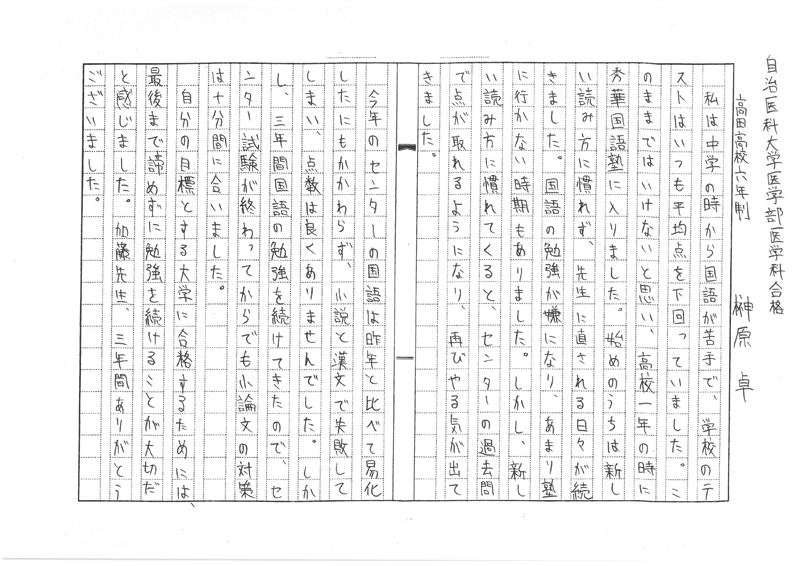 自治医科大学医学部医学科合格
高田高校六年制 榊原 卓
私は中学の時から国語が苦手で、学校のテ
ストはいつも平均点を下回っていました。こ
のままではいけないと思い、高校一年の時に
秀華国語塾に入りました。始めのうちは新し
い読み方に慣れず、先生に直される日々が続
きました。国語の勉強が嫌になり、あまり塾
に行かない時期もありました。しかし、新し
い読み方に慣れてくると、センターの過去問
で点が取れるようになり、再びやる気が出て
きました。
今年のセンターの国語は昨年と比べて易化
したにもかかわらず、小説と漢文で失敗して
しまい、点数は良くありませんでした。しか
し、三年間国語の勉強を続けてきたので、セ
ンター試験が終わってからでも小論文の対策
は十分間に合いました。
自分の目標とする大学に合格するためには、
最後まで諦めずに勉強を続けることが大切だ
と感じました。加藤先生、三年間ありがとう
ございました。